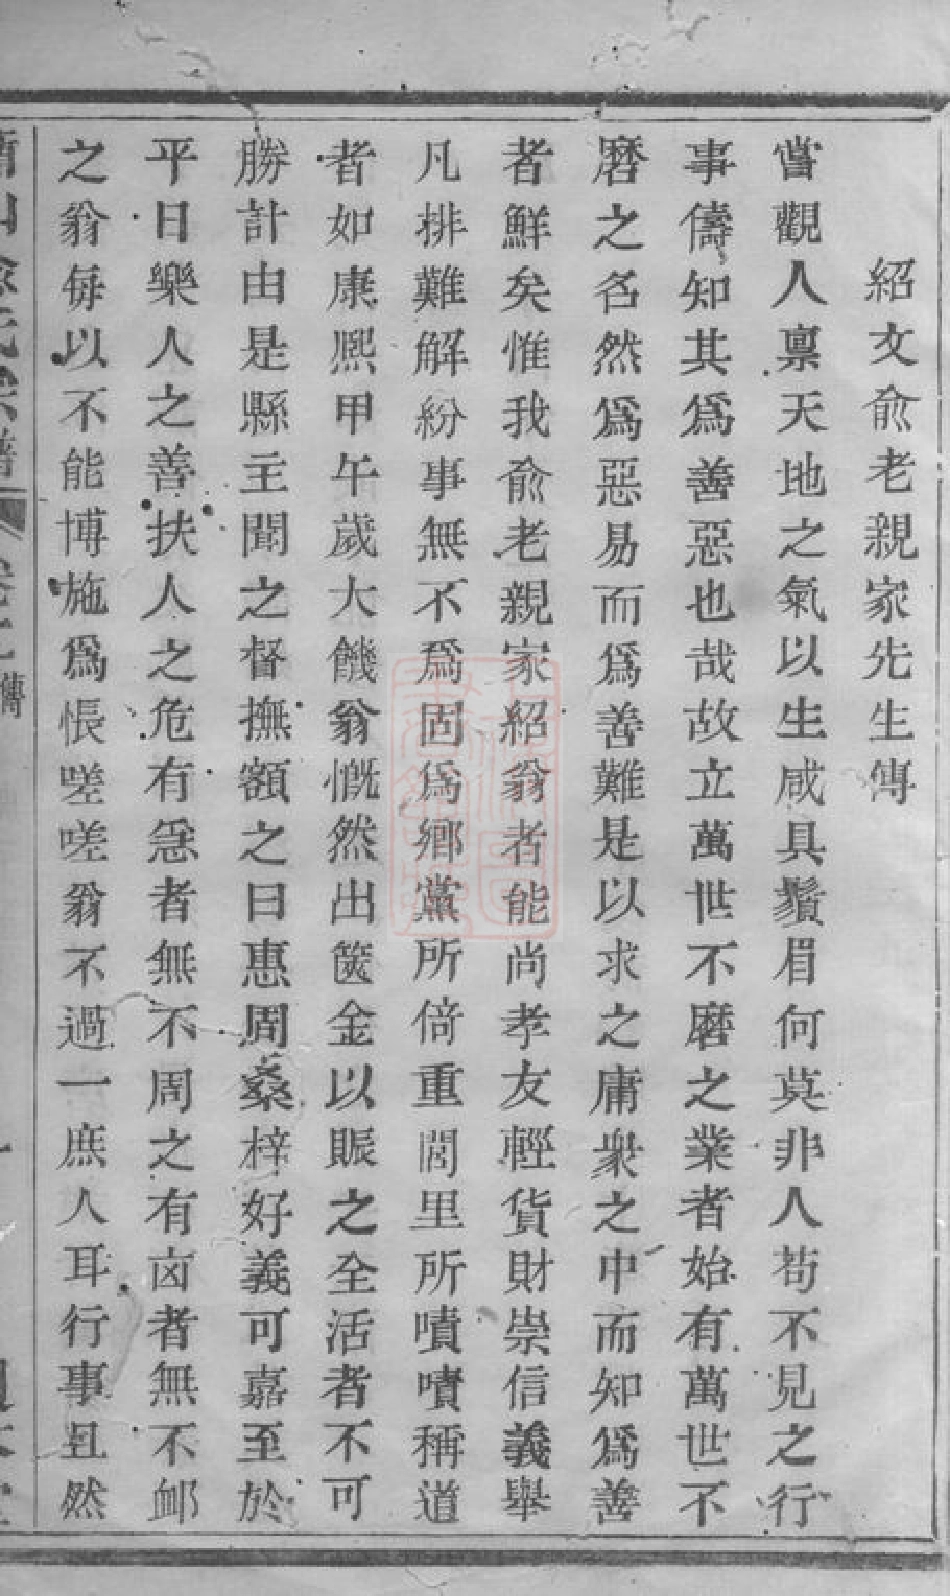 紹文俞老親家先生傳
嘗觀人禀天地之氣以生咸具鬚眉何莫非人苟不見之行
事儔知其爲善惡也哉故立萬世不磨之業者始有萬世不
磨之名然爲惡易而爲善難是以求之庸衆之中而知爲善
者鮮矣惟我俞老親家紹翁者能尚孝友輕貨財崇信義舉
凡排難解紛事無不爲固爲鄉黨所倚重閭里所嘖嘖稱道
者如康熙甲午歲大饑翁慨然出篋金以賑之全活者不可
勝計由是縣主聞之督撫額之曰惠周桑梓好義可嘉至於
平日樂人之善扶人之危有急者無不周之有凶者無不卹
之翁每以不能博施爲悵嗟嗟翁不過一庶人耳行事且然